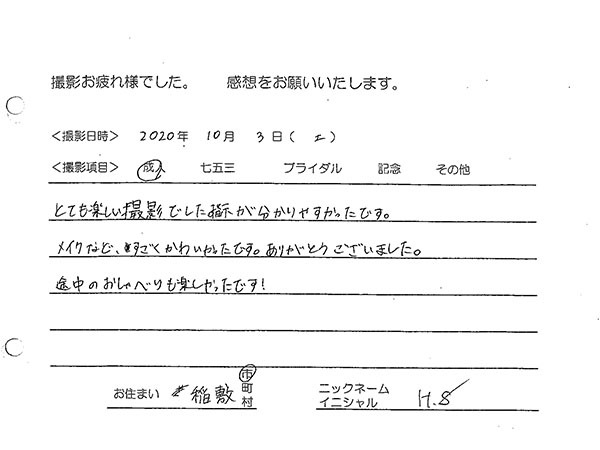 撮影お疲れ様でした。　感想をお願いいたします。
＜撮影日時＞ 2020年 10月 3日( 土 )
＜撮影項目＞ 成人 七五三 ブライダル 記念 その他
とても楽しい撮影でした指示が分かりやすかったです。
メイクなど、すごくかわいかったです。ありがとうございました。
途中のおしゃべりも楽しかったです!
お住まい 稲敷 市 町 村 ニックネーム イニシャル H.S